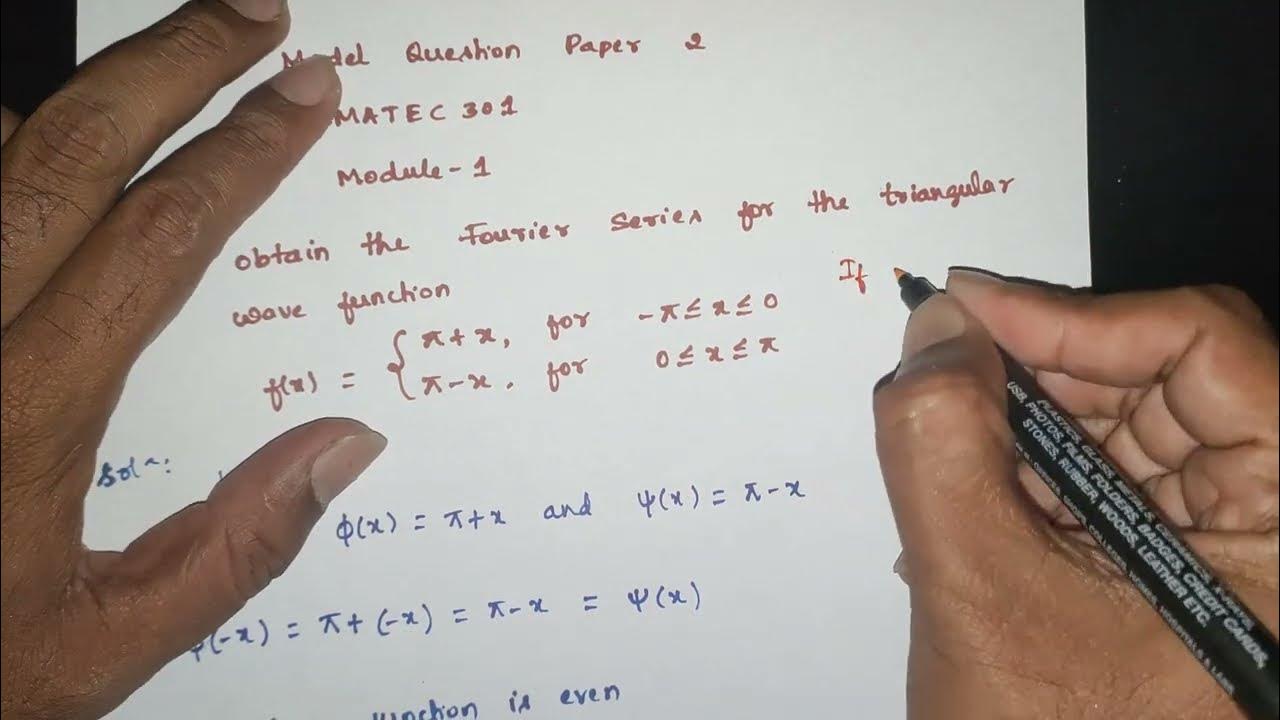 Model Question Paper 2
MATEC 301
Module-1
obtain the Fourier Series for the triangular
wave function
If
f(x) = { π+x, for -π≤x≤0
π-x. for 0≤x≤π
Solⁿ:
ϕ(x) = π+x and ψ(x) = π-x
ϕ(-x) = π+(-x) = π-x = ψ(x)
function is even
PLASTICS, GLASS, METALS, CERAMICS, VINYL,
USB, PHOTOS, FILMS, FOLDERS, BADGES, CREDIT CARDS,
STONES, RUBBER, WOODS, LEATHER ETC.